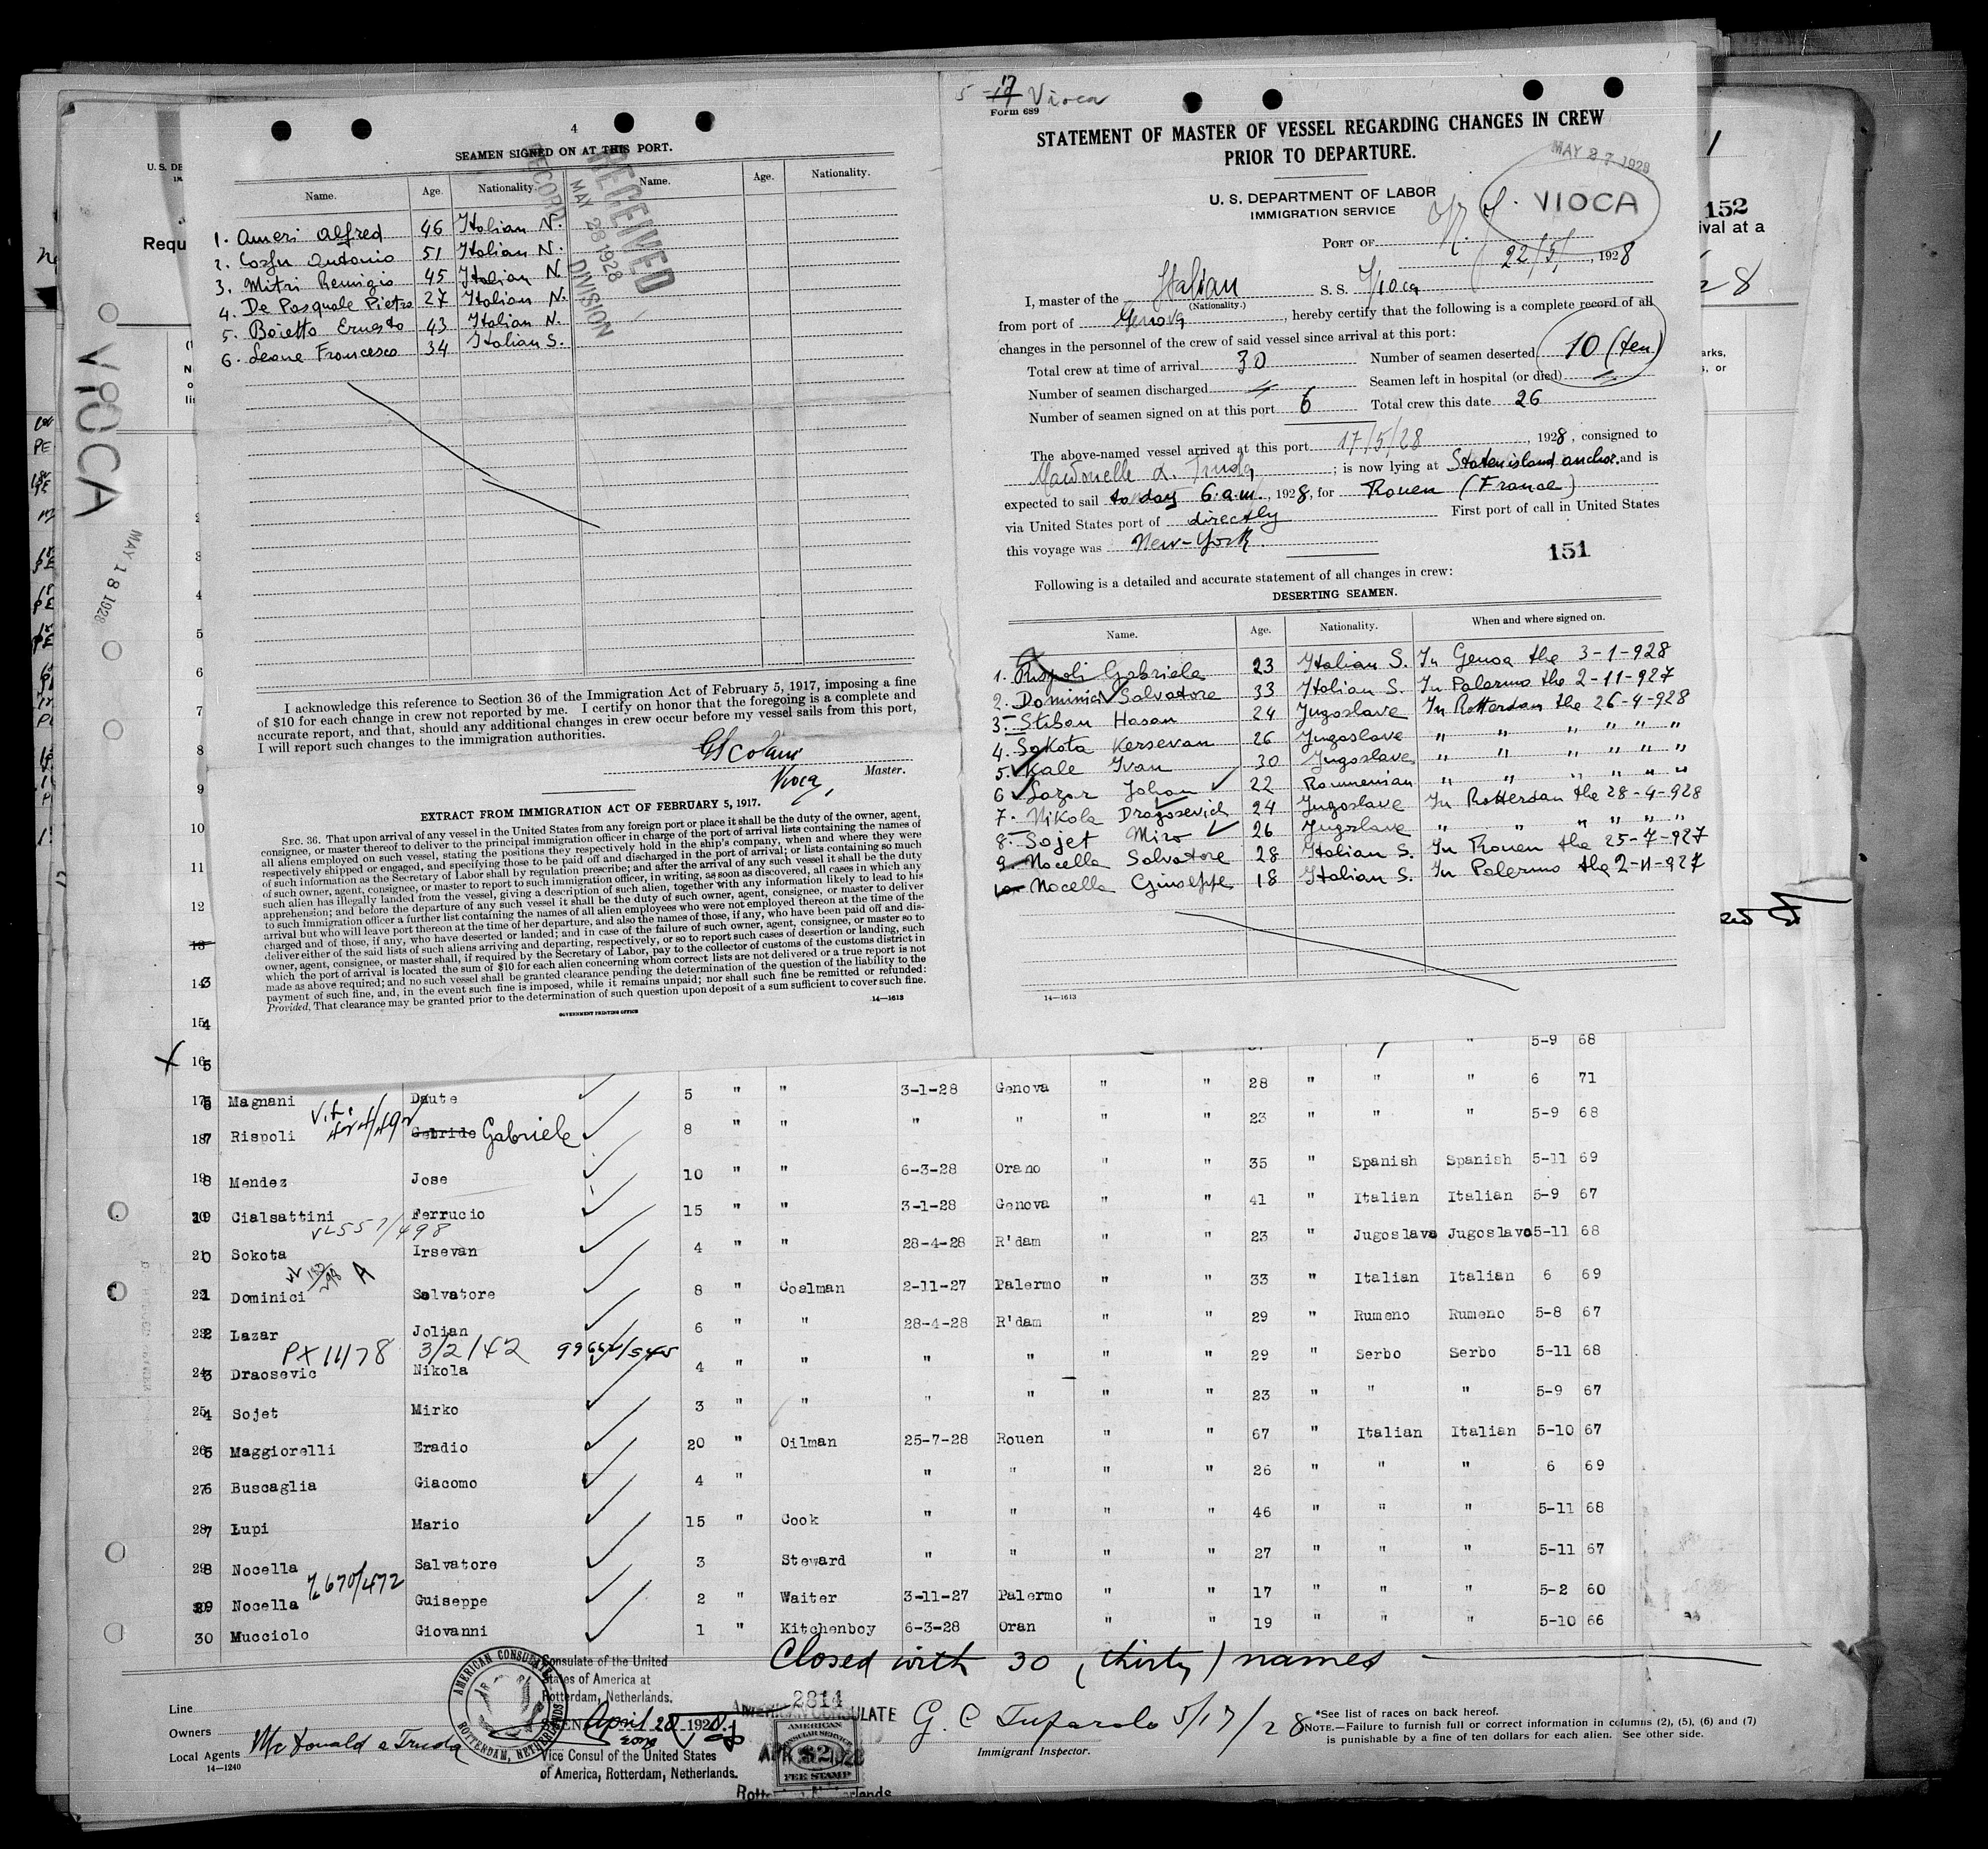 4
SEAMEN SIGNED ON AT THIS PORT.
Name. Age. Nationality. Name. Age. Nationality.
RECEIVED
MAY 28 1928
RECORD DIVISION
1. Ameri Alfred 46 Italian N.
2. Antonio 51 Italian N.
3. Mitri Remigio 45 Italian N
4. De Pasquale Pietro 27 Italian N.
5. Boietto Ernesto 43 Italian N.
6. Leone Francesco 34 Italian S.
I acknowledge this reference to Section 36 of the Immigration Act of February 5, 1917, imposing a fine
of $10 for each change in crew not reported by me. I certify on honor that the foregoing is a complete and
accurate report, and that, should any additional changes in crew occur before my vessel sails from this port,
I will report such changes to the immigration authorities.
Vioca, Master.
EXTRACT FROM IMMIGRATION ACT OF FEBRUARY 5, 1917.
SEC. 36. That upon arrival of any vessel in the United States from any foreign port or place it shall be the duty of the owner, agent,
consignee, or master thereof to deliver to the principal immigration officer in charge of the port of arrival lists containing the names of
all aliens employed on such vessel, stating the positions they respectively hold in the ship's company, when and where they were
respectively shipped or engaged, and specifying those to be paid off and discharged in the port of arrival; or lists containing so much
of such information as the Secretary of Labor shall by regulation prescribe; and after the arrival of any such vessel it shall be the duty
of such owner, agent, consignee, or master to report to such immigration officer, in writing, as soon as discovered, all cases in which any
such alien has illegally landed from the vessel, giving a description of such alien, together with any information likely to lead to his
apprehension; and before the departure of any such vessel it shall be the duty of such owner, agent, consignee, or master to deliver
to such immigration officer a further list containing the names of all alien employees who were not employed thereon at the time of the
arrival but who will leave port thereon at the time of her departure, and also the names of those, if any, who have been paid off and dis-
charged and of those, if any, who have deserted or landed; and in case of the failure of such owner, agent, consignee, or master so to
deliver either of the said lists of such aliens arriving and departing, respectively, or so to report such cases of desertion or landing, such
owner, agent, consignee, or master shall, if required by the Secretary of Labor, pay to the collector of customs of the customs district in
which the port of arrival is located the sum of $10 for each alien concerning whom correct lists are not delivered or a true report is not
made as above required; and no such vessel shall be granted clearance pending the determination of the question of the liability to the
payment of such fine, and, in the event such fine is imposed, while it remains unpaid; nor shall such fine be remitted or refunded:
Provided, That clearance may be granted prior to the determination of such question upon deposit of a sum sufficient to cover such fine.
14—1613
GOVERNMENT PRINTING OFFICE
5 17 Vioca
Form 689
STATEMENT OF MASTER OF VESSEL REGARDING CHANGES IN CREW
PRIOR TO DEPARTURE.
MAY 27 1928
U. S. DEPARTMENT OF LABOR
IMMIGRATION SERVICE
VIOCA
PORT OF N. Y.
22/5/, 1928
I, master of the Italian S. S. Vioca
(Nationality.)
from port of Genova, hereby certify that the following is a complete record of all
changes in the personnel of the crew of said vessel since arrival at this port:
Total crew at time of arrival 30 Number of seamen deserted 10 (ten)
Number of seamen discharged Seamen left in hospital (or died)
Number of seamen signed on at this port 6 Total crew this date 26
The above-named vessel arrived at this port 17/5/28, 1928, consigned to
; is now lying at Staten island anchor. and is
expected to sail to day 6.a.m., 1928, for Rouen (France)
via United States port of directly First port of call in United States
this voyage was New-York.
151
Following is a detailed and accurate statement of all changes in crew:
DESERTING SEAMEN.
Name. Age. Nationality. When and where signed on.
1. Rispoli Gabriele 23 Italian S. In Genoa the 3-1-928
2. Dominici Salvatore 33 Italian S. In Palermo the 2-11-927
3. Stiban Hasan 24 Jugoslave In Rotterdan the 26-4-928
4. Sokota Kersevan 26 Jugoslave " " " " " "
5. Kale Ivan 30 Jugoslave " " " " " "
6 Lazar Johan 22 Roumenian " " " " " "
7. Nikola Dragosevich 24 Jugoslave In Rotterdan the 28-4-928
8. Sojet Miro 26 Jugoslave " " " " " "
9. Nocella Salvatore 28 Italian S. In Rouen the 25-7-927
10. Nocella Giuseppe 18 Italian S. In Palermo the 2-11-927
14—1613
152
VIOCA
MAY 18 1928
5-9 68
17 Magnani Daute 5 " " 3-1-28 Genova " " 28 " " " 6 71
18 Rispoli Gebride Gabriele 8 " " " " " " 23 " " " 5-9 68
19 Mendez Jose 10 " " 6-3-28 Orano " " 35 " Spanish Spanish 5-11 69
20 Cialsattini Ferrucio 15 " " 3-1-28 Genova " " 41 " Italian Italian 5-9 67
21 Sokota Irsevan 4 " " 28-4-28 R'dam " " 23 " Jugoslave Jugoslave 5-11 68
22 Dominici Salvatore 8 " Coalman 2-11-27 Palermo " " 33 " Italian Italian 6 69
23 Lazar Jolian 6 " " 28-4-28 R'dam " " 29 " Rumeno Rumeno 5-8 67
PX 11178 3/2/42
24 Draosevic Nikola 4 " " " " " " 29 " Serbo Serbo 5-11 68
25 Sojet Mirko 3 " " " " " " 23 " " " 5-9 67
26 Maggiorelli Eradio 20 " Oilman 25-7-28 Rouen " " 67 " Italian Italian 5-10 67
27 Buscaglia Giacomo 4 " " " " " " 26 " " " 6 69
28 Lupi Mario 15 " Cook " " " " 46 " " " 5-11 68
29 Nocella Salvatore 3 Steward " " " " 27 " " " 5-11 67
670/472
Nocella Guiseppe 2 " Waiter 3-11-27 Palermo " " 17 " " " 5-2 60
30 Mucciolo Giovanni 1 " Kitchenboy 6-3-28 Oran " " 19 " " " 5-10 66
Closed with 30 (thirty) names
Line
Owners
Local Agents McDonald & Truda
14—1240
AMERICAN CONSULATE
ROTTERDAM, NETHERLANDS
Consulate of the United
States of America at
Rotterdam, Netherlands.
SEEN April 28 1928.
Vice Consul of the United States
of America, Rotterdam, Netherlands.
2814
AMERICAN CONSULATE
AMERICAN
CONSULAR SERVICE
$2
FEE STAMP
5/17/28
Immigrant Inspector.
*See list of races on back hereof.
NOTE.—Failure to furnish full or correct information in columns (2), (5), (6) and (7)
is punishable by a fine of ten dollars for each alien. See other side.